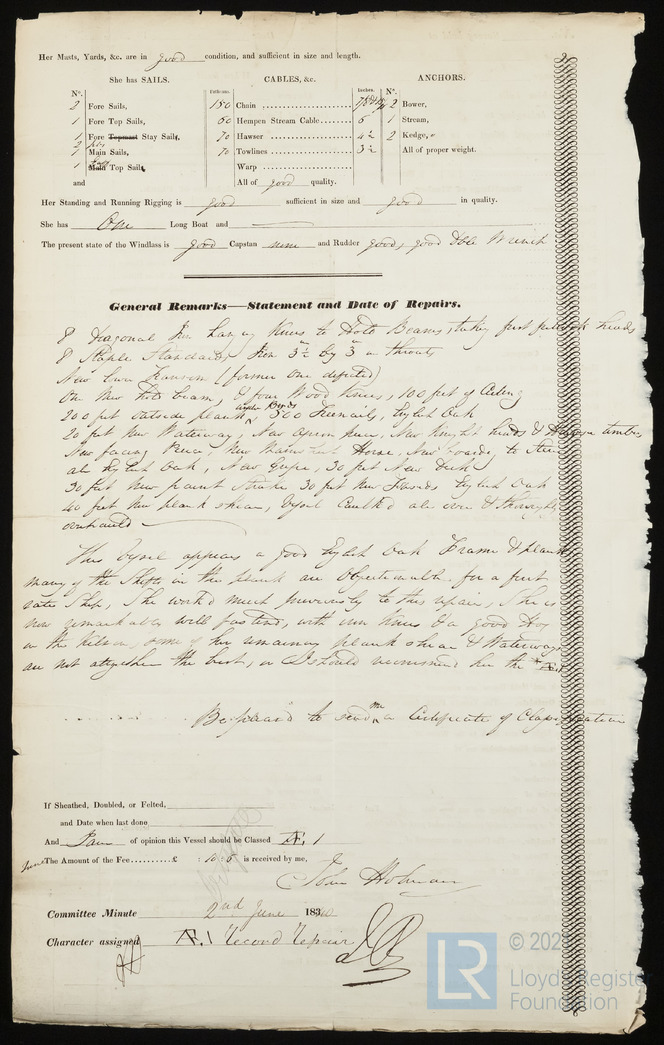 Her Masts, Yards, &c. are in good condition, and sufficient in size and length.
She has SAILS. CABLES, &c. ANCHORS.
N°. Fathoms. Inches. N°.
2 Fore Sails, 150 Chain 2 Bower,
1 Fore Top Sails, 60 Hempen Stream Cable 6 1 Stream,
1 Fore Topmast Stay Sails, 70 Hawser 4½ 2 Kedge,
2 Main Sails, 70 Towlines 3½ All of proper weight.
1 Main Top Sails, Warp
and All of good quality.
Her Standing and Running Rigging is good sufficient in size and good in quality.
She has One Long Boat and
The present state of the Windlass is good Capstan none and Rudder good, good Dble Winch
General Remarks—Statement and Date of Repairs.
8 Diagonal Iron hanging Knees to Hold Beams,
8 Staple Standards Iron 3½ by 3 in throats
New Transom (former one defected)
On New Beam, & four Wood Knees, 100 feet of Ceiling
200 feet outside plank, 500 Treenails, English Oak
20 feet New Waterway, New Apron piece, New Knight heads &
New facing piece, New Hawse, New
all English Oak, New 30 feet New Deck
30 feet new paint Strake 30 feet New English Oak
40 feet New plank shear, Vessel Caulked all over & thoroughly
overhauled
This Vessel appears a good English Oak Frame & plank
many of the Shifts in the plank are objectionable for a first
rate Ship, She work'd much previously to this repair, She is
now remarkably well fastend, with iron Knees & a good
on the Kelson, some of her remaining plank shear & Waterways
are not altogether the best, or I should recommend her the * Æ.1
Be pleas'd to send me a Certificate of Classification
If Sheathed, Doubled, or Felted,
and Date when last done
And I am of opinion this Vessel should be Classed Æ 1
The Amount of the Fee £ : 10 : 6 is received by me,
John Holman
Committee Minute 2nd June 1840
Character assigned Æ.1 Second Repair
LR
© 202
Lloyd's Register
Foundation